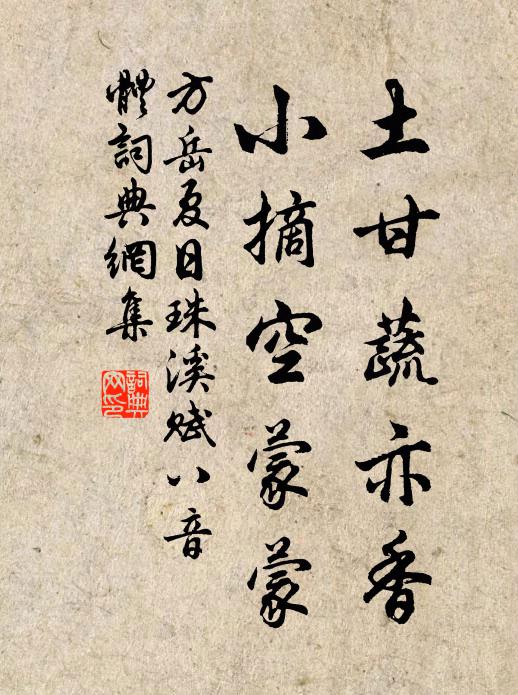 土甘蔬亦香
小摘空蒙蒙
方岳夏日珠溪賦八音
體詞典網集
詞典
网印